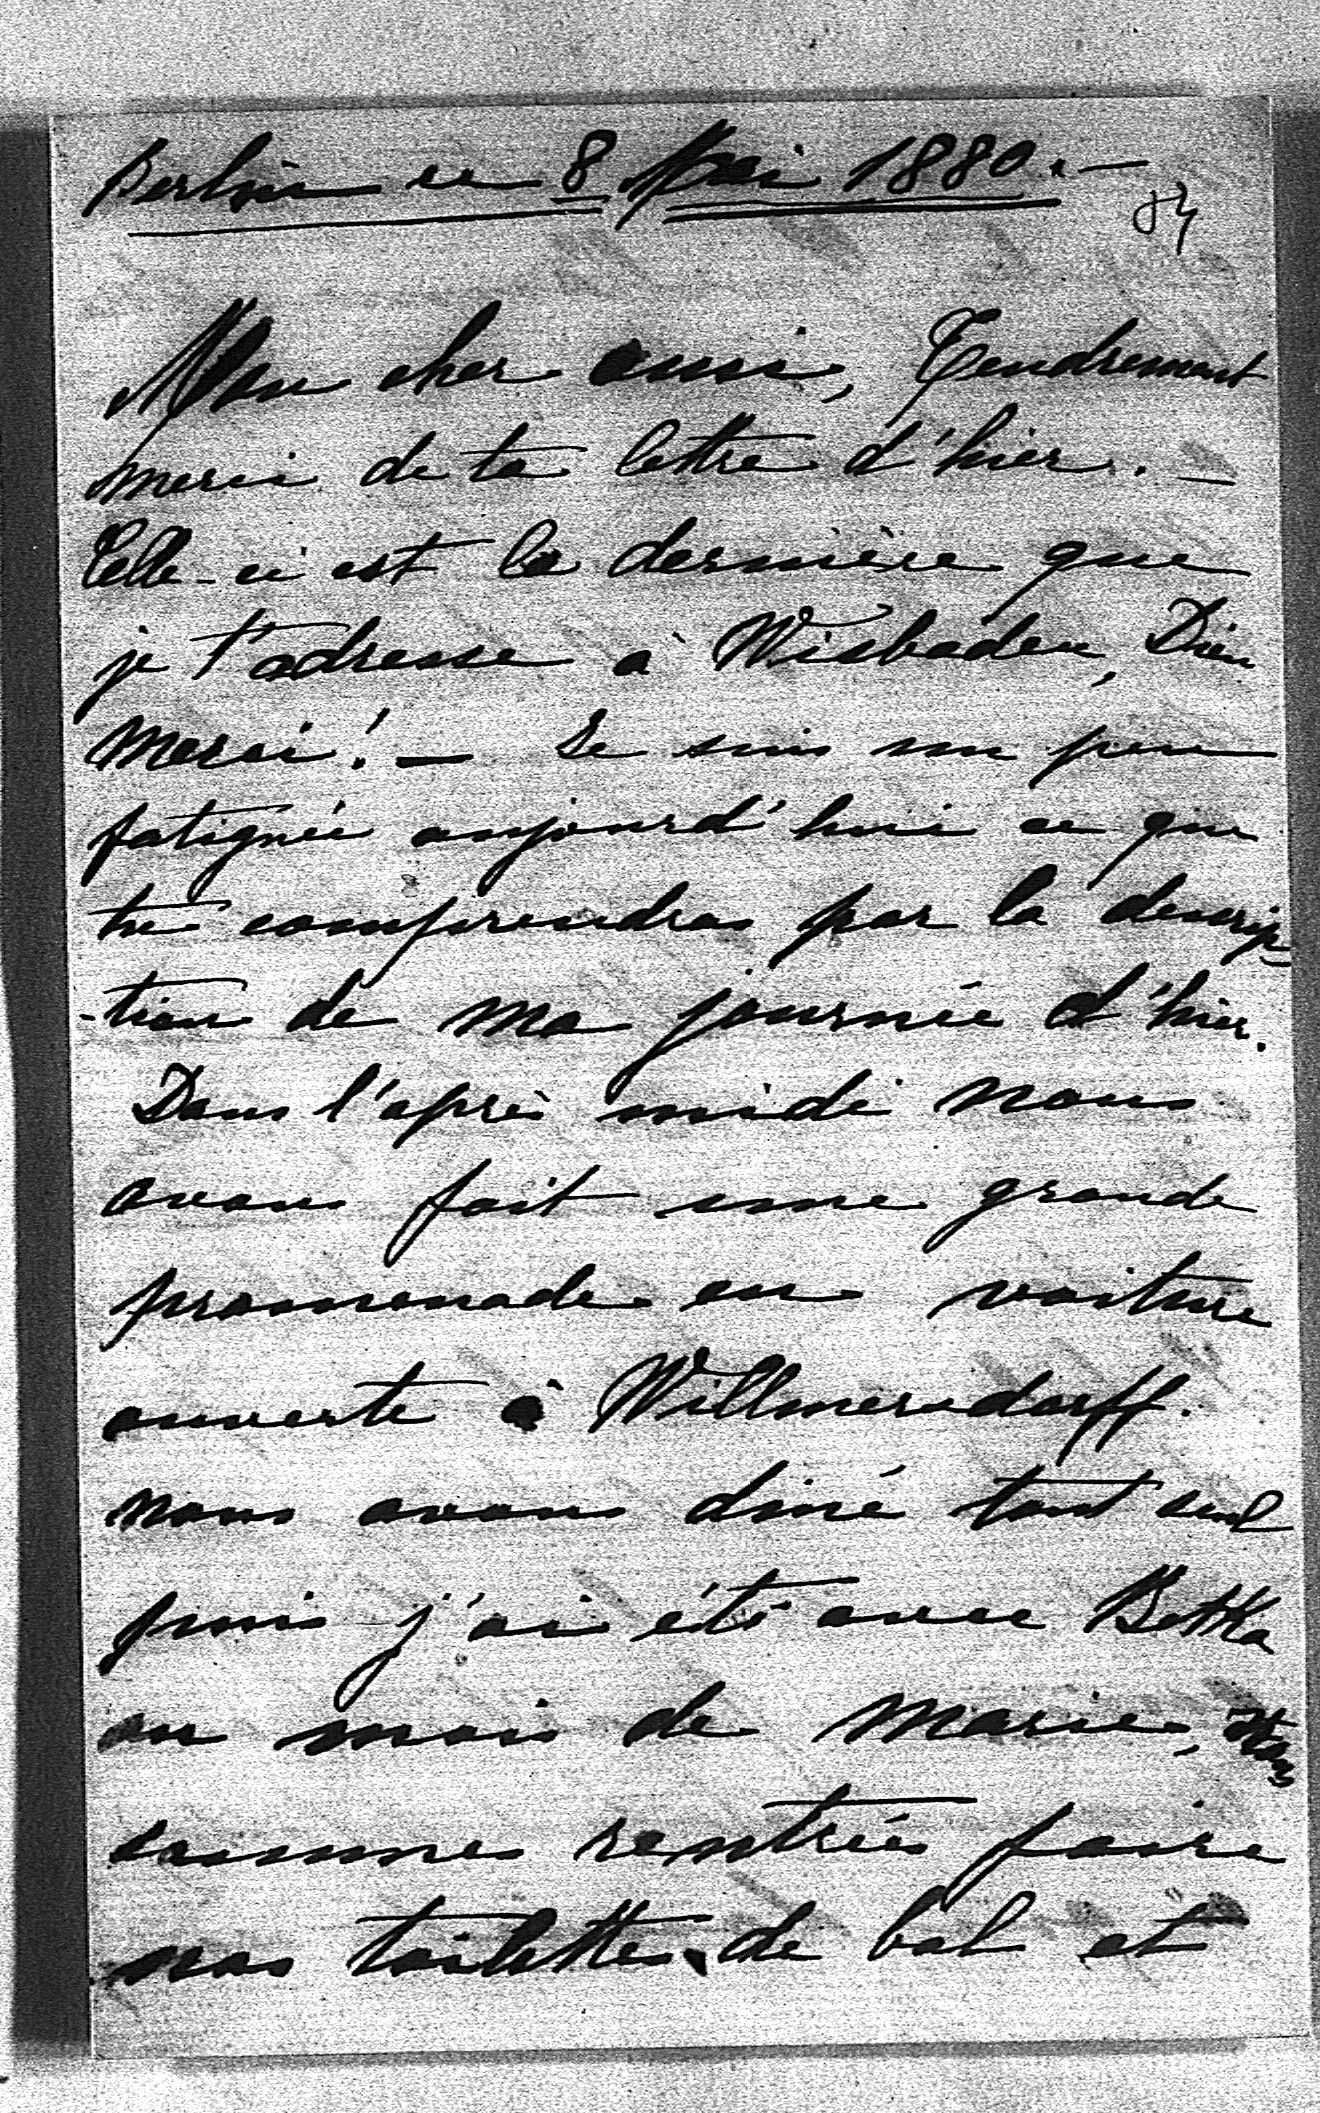 Berlin ce 8 Mai 1880. —
Mon cher ami, Tendrement
merci de ta lettre d'hier. —
Celle-ci est la dernière que
je t'adresse à Wisbaden, Dieu
merci! — Je suis un peu
fatiguée aujourd'hui ce que
tu comprendras par la descrip-
-tion de ma journée d'hier.
Dans l'après midi nous
avons fait une grande
promenade en voiture
ouverte à Willmersdorff.
nous avons diné tout seul
puis j'ai été avec Betka
au mois de Marie, nous
sommes rentrées faire
nos toilettes de bal et